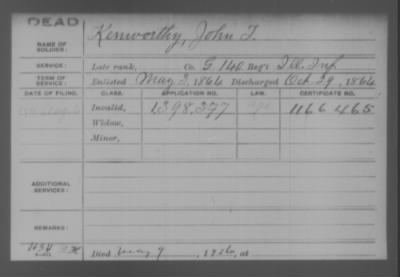 DEAD
NAME OF SOLDIER: Kenworthy, John T.
SERVICE: Late rank, Co. G, 140 Reg't Ill. Inf.
TERM OF SERVICE: Enlisted May 3, 1864 Discharged Oct. 29, 1864
DATE OF FILING. CLASS. APPLICATION NO. LAW. CERTIFICATE NO.
Invalid, 1398.377 1166 465
Widow,
Minor,
ADDITIONAL SERVICES:
REMARKS:
Died May 9, 19 , at